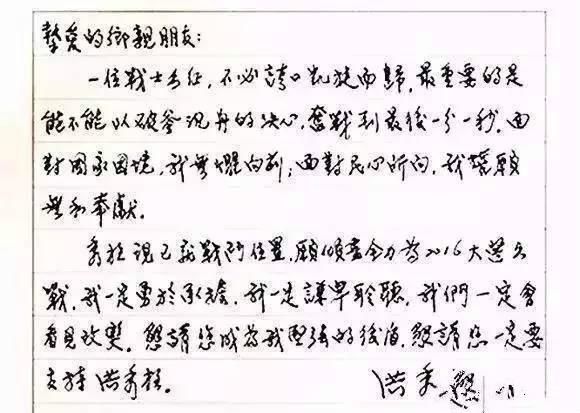 摯愛的鄉親朋友：
一位戰士出征，不必誇口凱旋而歸，最重要的是
能不能以破釜沉舟的決心，奮戰到最後一分一秒。面
對國家困境，我無懼向前；面對民心所向，我誓願
無私奉獻。
秀柱現已就戰鬥位置，願傾盡全力為2016大選之
戰，我一定勇於承擔，我一定謙卑聆聽，我們一定會
看見改變。懇請您成為我堅強的後盾，懇請您一定要
支持洪秀柱。
洪秀柱